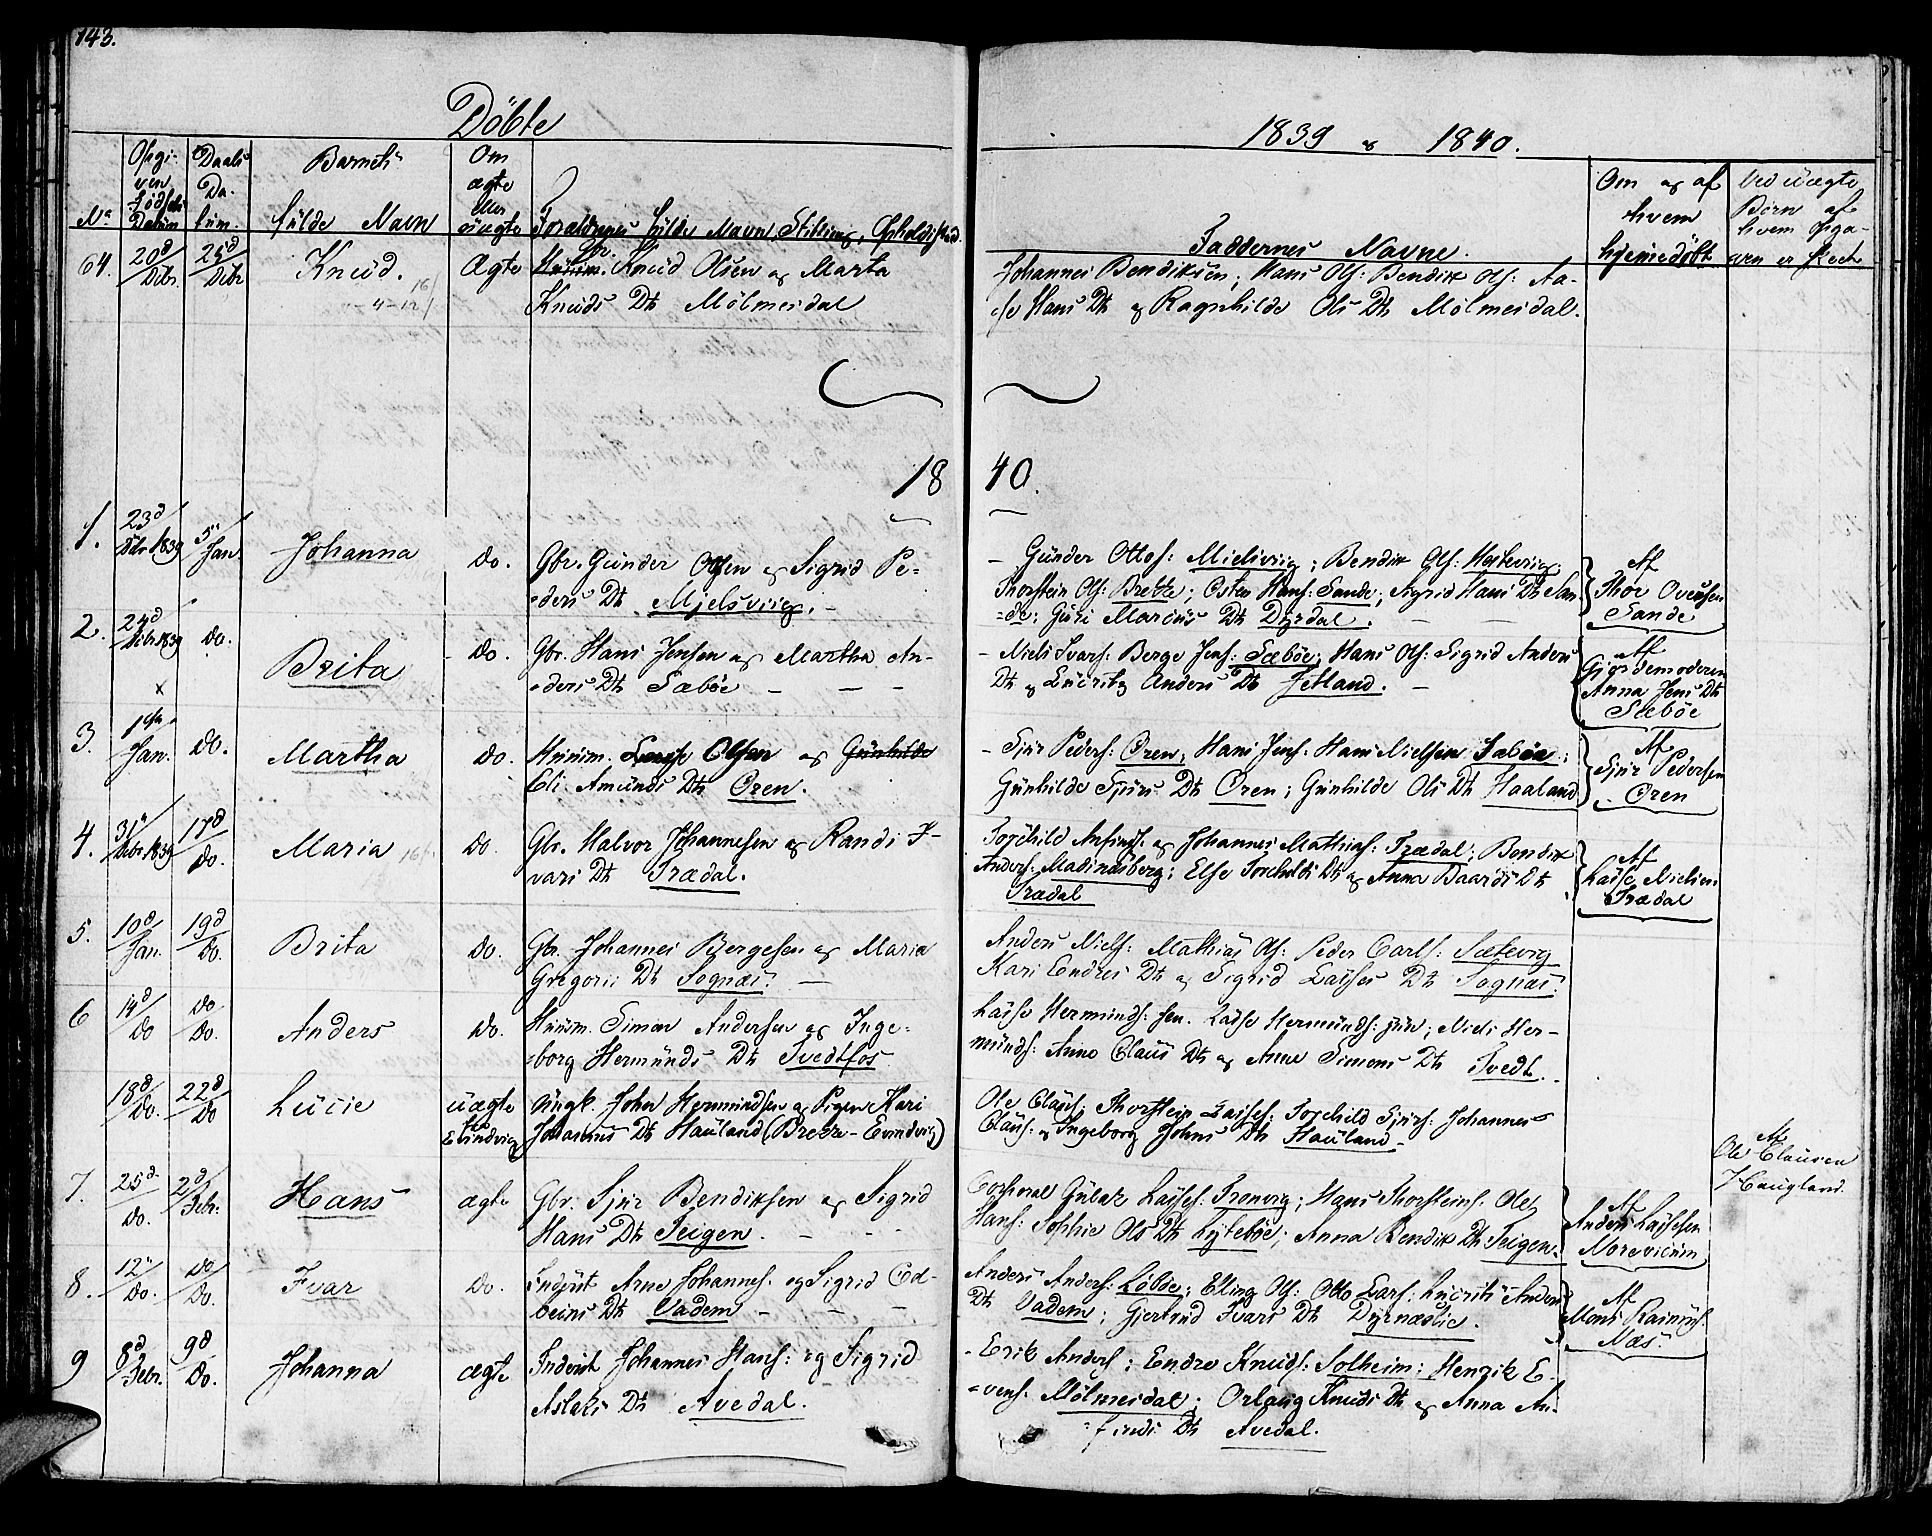 143.
Döbte
1839 & 1840.
No
Opgi-
ven
Födsels
Datum
Daabs
Da-
tum.
Barnets
fulde Navn
Om
ægte
eller
uægte
Forældrenes fulde Navn, Stilling, Opholdssted.
Faddernes Navne.
Om og af
hvem
hjemedöbt
Ved uægte
Börn af
hvem Opga-
ven er skeet
64. 20d/Debr. 25d/Debr Knud. Ægte Gbr. Knud Olsen og Marta
Knuds Dtr Mölmesdal
Johannes Bendiksen, Hans Ols: Bendik Ols: Aa-
se Hans Dtr og Ragnhilde Ols Dtr Mölmesdal.
1840.
1. 23d/Debr 1839 5te/Jan. Johanna do. Gbr. Gunder Olsen og Sigrid Pe-
ders Dtr Mjelsviig.
- Gunder Ottes: Mielsviig; Bendik Ols: Hesteviig;
Thorstein Ols: Brekke; Osten Hans: Sande; Sigrid Hans Dtr San-
de; Guri Marcus Dtr Dyrdal.
Af
Thor Ovensen
Sande
2. 24d/Debr 1839 do. Brita do. Gbr. Hans Jensen og Martha An-
ders Dtr Sæböe
- Niels Ivars: Berge Jens: Sæböe; Hans Ols: Sigrid Anders
Dtr og Anders Dtr Jetland.
Af
Gjordemoderen
Anna Jens Dtr
Sæböe
3. 1ste/Jan. do. Martha do. Huusm. Olsen og Gunhilde
Eli Amunds Dtr Oren.
- Sjur Peders: Oren; Hans Jens: Hans Nielsen Sæböe;
Gunhilde Sjurs Dtr Oren; Gunhilde Ols Dtr Haaland
Af
Sjur Pedersen
Oren
4. 31te/Debr 1839 17d/do. Maria do. Gbr. Halvor Johannesen og Randi I-
vars Dtr Trædal.
Torchild Arfinds: og Johannes Mathias: Trædal; Bendik
Anders: Madsinasberg; Else Torchilds Dtr og Anna Baards Dtr
Trædal
Af
Lasse Nielsen
Trædal
5. 10d/Jan. 19d/Do. Brita do. Gbr. Johannes Bergesen og Maria
Gregorii Dtr Sognæs.
Anders Niels: Mathias Ols: Peder Carls: Sætevig
Kari Endres Dtr og Sigrid Lasses Dtr Sognæs.
6 14d/do do/Do. Anders do. Huusm. Simon Andersen og Inge-
borg Hermunds Dtr Tvedtfos
Lasse Hermunds: sen. Lasse Hermunds: jun; Niels Her-
munds: Anne Claus Dtr og Anne Simons Dtr Tvedt.
18d/Do. 22d/Do Lucie uægte
Evindvig
Ungk. John Hermundsen og Pigen Kari
Johannes Dtr Hauland (Brekke-Evindvig)
Ole Claus: Thorstein Lasses: Torchild Sjurs: Johannes
Claus: og Ingeborg Johns Dtr Hauland
Af
Ole Clausen
Haugland.
7. 25d/do. 2d/Febr. Hans ægte Gbr. Sjur Bendiksen og Sigrid
Hans Dtr Teigen.
Corporal Gulak Lasses: Tronvig; Hans Thorsteins: Ole
Hans: Sophie Ols Dtr Lyteböe; Anna Bendik Dtr Teigen.
Af
Anders Lassesen
Norevicum
8. 12te/Do. do/Do. Ivar do. Inderst Arne Johannes: og Sigrid Ed-
beins Dtr Vadem
Anders Anders: Löböe; Elling Ols: Otto Lars: Anders
Dtr Vadem; Gjertrud Ivars Dtr Dyrnæslie.
Af
Mons
Næs.
9 8d/Febr. 9d/Do. Johanna ægte Inderst Johannes Hans: og Sigrid
Aslaks Dtr Avedal.
- Erik Anders; Endre Knuds: Solheim; Henrik E-
vens: Mölmesdal; Orlaug Knuds Dtr og Anna An-
finds Dtr Avedal.